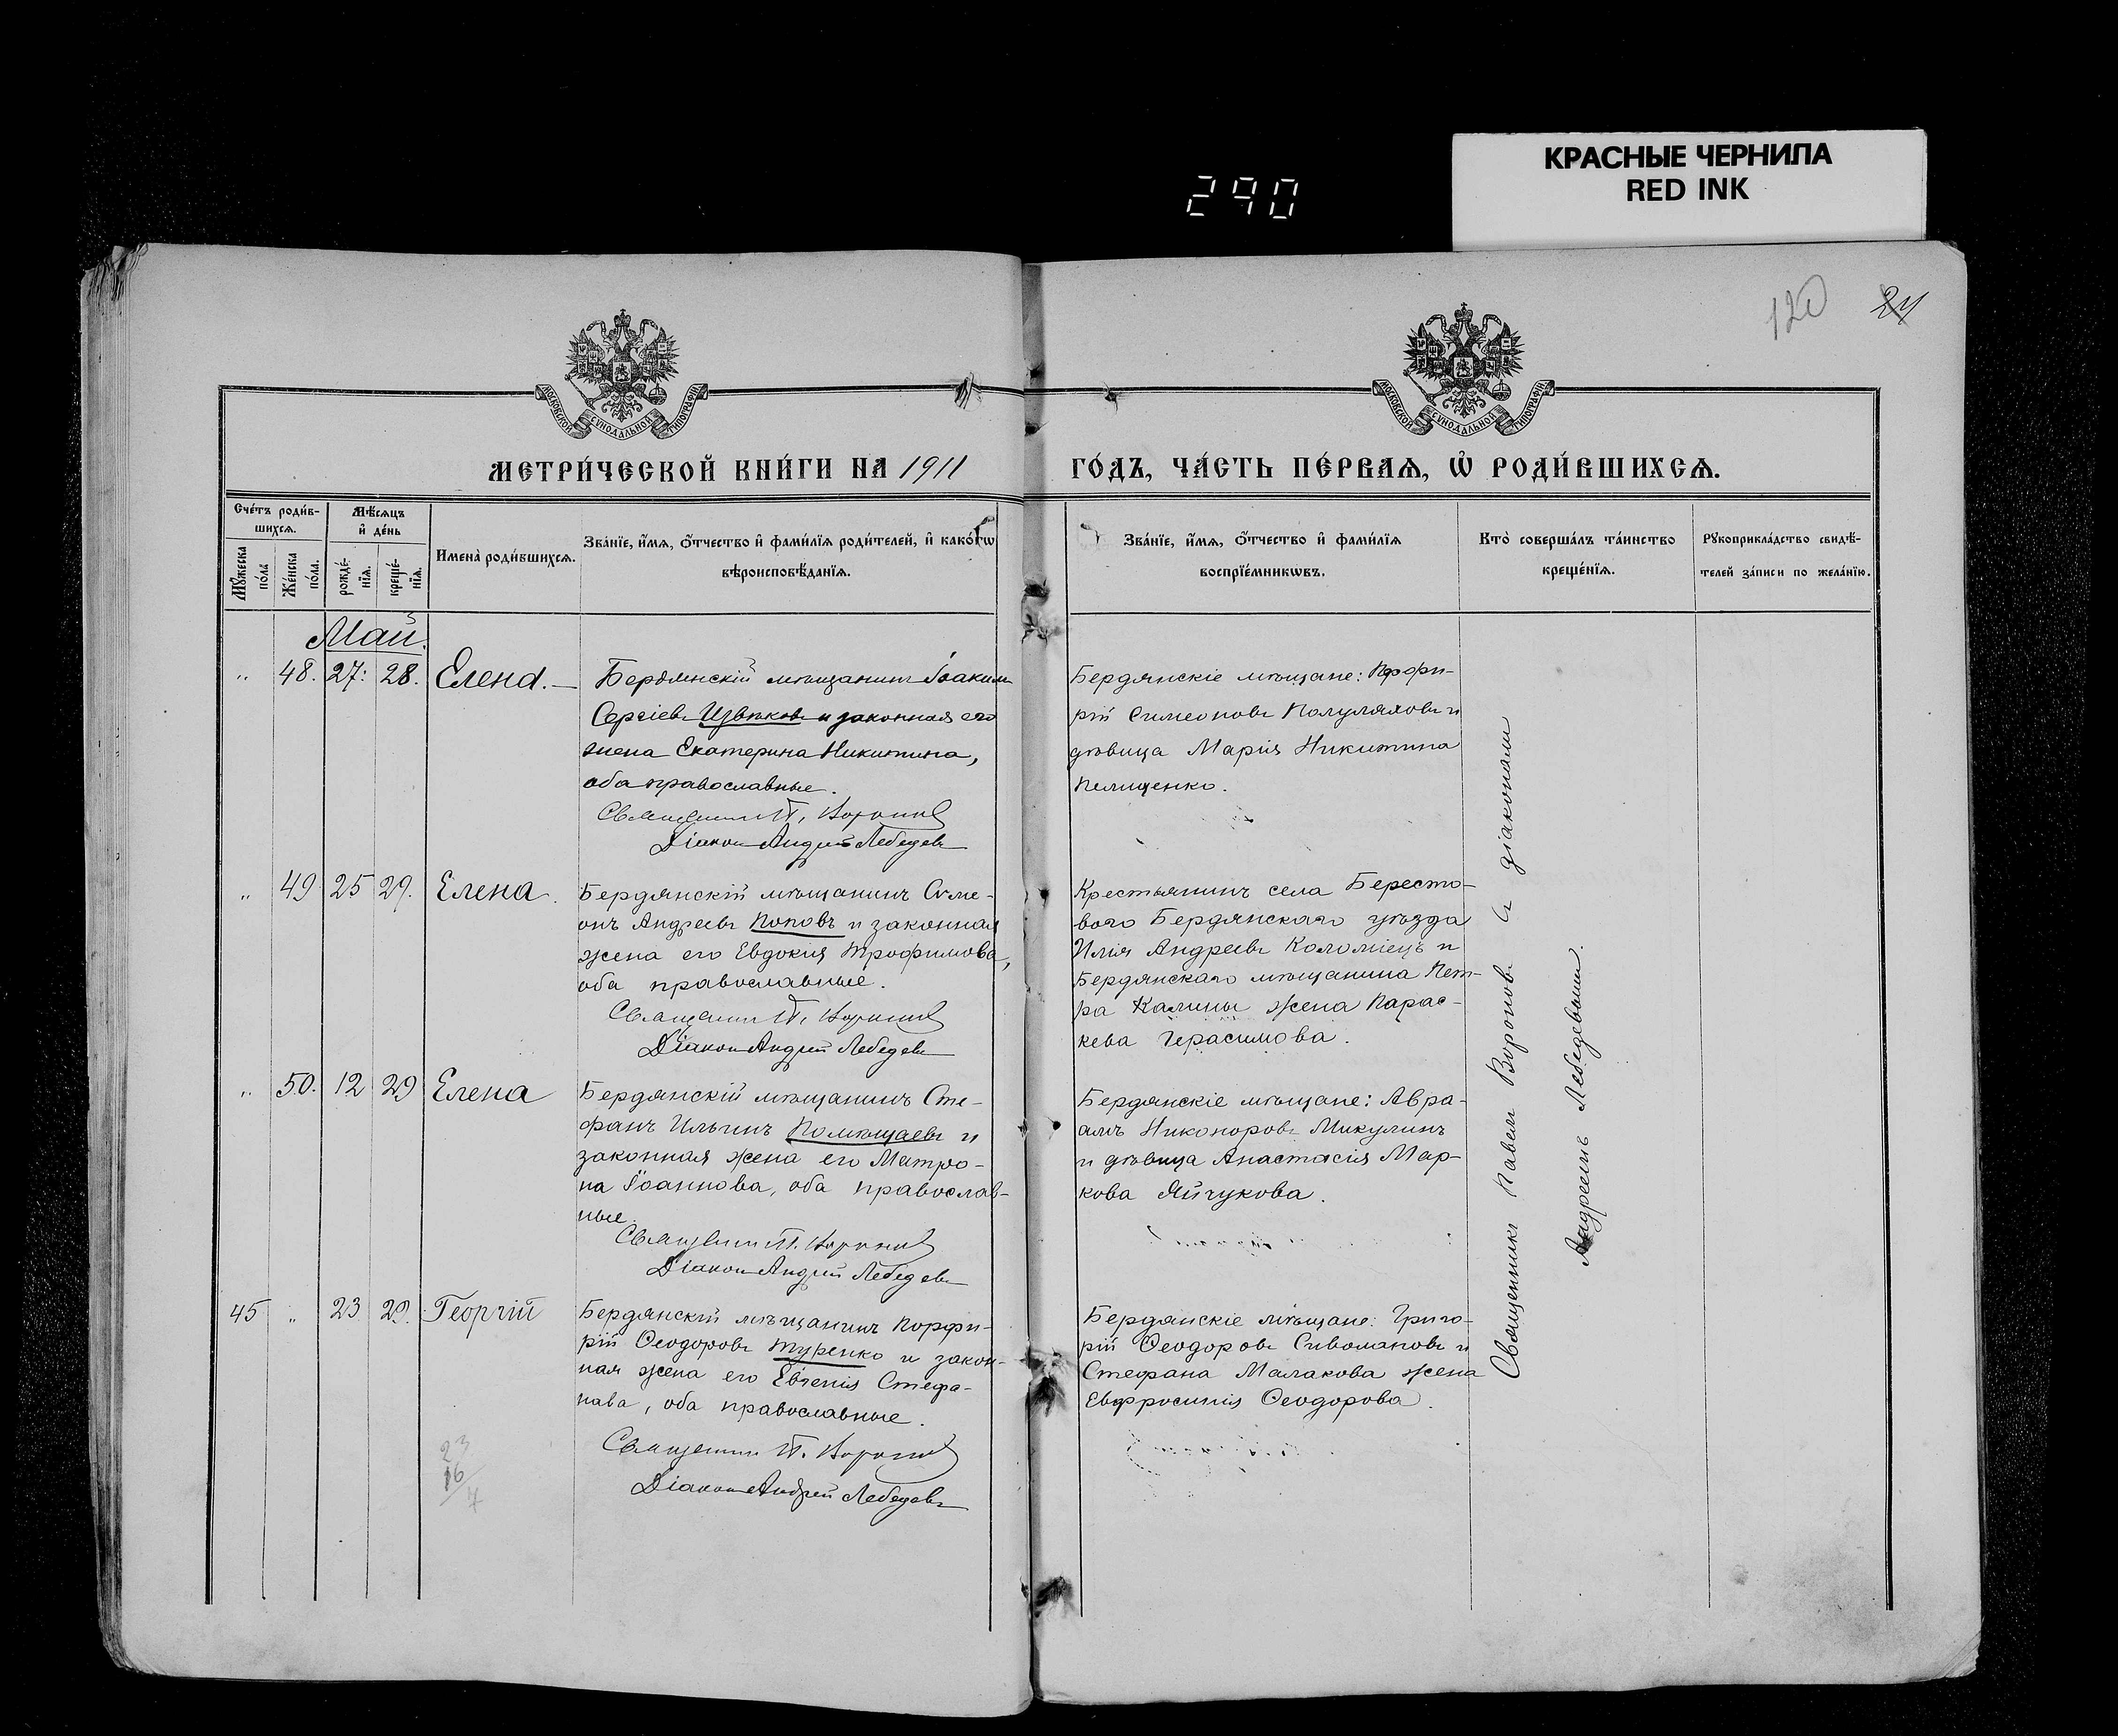 КРАСНЫЕ ЧЕРНИЛА
RED INK
290
120 24
МОСКОВСКОЙ СУНОДАЛЬНОЙ ТИПОГРАФІИ
МОСКОВСКОЙ СУНОДАЛЬНОЙ ТИПОГРАФІИ
МЕТРИ́ЧЕСКОЙ КНИ́ГИ НА 1911
ГО́ДЪ, ЧА́СТЬ ПЕ́РВАѦ, Ѡ҆ РОДИ́ВШИХСѦ.
Сче́тъ роди́в-
шихсѧ.
Мꙋ́жеска по́ла
Же́нска по́ла.
Мѣ́сѧцъ
и҆ де́нь
рожде́-
нїѧ.
креще́-
нїѧ.
Имена̀ роди́вшихсѧ.
Зва́нїе, и҆́мѧ, ѻ҆́тчество и҆ фами́лїѧ роди́телей, и҆ како́гѡ
вѣроисповѣ́данїѧ.
Зва́нїе, и҆́мѧ, ѻ҆́тчество и҆ фами́лїѧ
воспрїе́мникѡвъ.
Кто̀ соверша́лъ та́инство
креще́нїѧ.
Рꙋкоприкла́дство свидѣ́-
телей за́писи по жела́нїю.
Май.
„ 48. 27. 28. Елена.
Бердянскій мѣщанинъ Іоакимъ
Сергіевъ Цзвѣковъ и законная его
жена Екатерина Никитина,
оба православные.
Священникъ П. Вороновъ
Діаконъ Андрей Лебедевъ
Бердянскіе мѣщане: Порфи-
рій Симеоновъ Полуляховъ и
дѣвица Марія Никитина
Пелищенко.
„ 49 25 29. Елена.
Бердянскій мѣщанинъ Симе-
онъ Андреевъ Поповъ и законная
жена его Евдокія Трофимова,
оба православные.
Священникъ П. Вороновъ
Діаконъ Андрей Лебедевъ
Крестьянинъ села Бересто-
вого Бердянскаго уѣзда
Илія Андреевъ Коломіецъ и
Бердянскаго мѣщанина Пет-
ра Калины жена Парас-
кева Герасимова.
„ 50. 12 29 Елена
Бердянскій мѣщанинъ Сте-
фанъ Ильинъ Помѣщаевъ и
законная жена его Матро-
на Іоаннова, оба православ-
ные.
Священникъ П. Вороновъ
Діаконъ Андрей Лебедевъ
Бердянскіе мѣщане: Авра-
амъ Никоноровъ Микулинъ
и дѣвица Анастасія Мар-
кова Яйчукова.
45 „ 23 29. Георгій
Бердянскій мѣщанинъ Порфи-
рій Ѳеодоровъ Туренко и закон-
ная жена его Евгенія Стефа-
нова, оба православные.
Священникъ П. Вороновъ
Діаконъ Андрей Лебедевъ
Бердянскіе мѣщане: Григо-
рій Ѳеодоровъ Сивомановъ и
Стефана Малакова жена
Евфросинія Ѳеодорова.
Священникъ Павелъ Вороновъ съ діакономъ
Андреемъ Лебедевымъ.
23
16
7